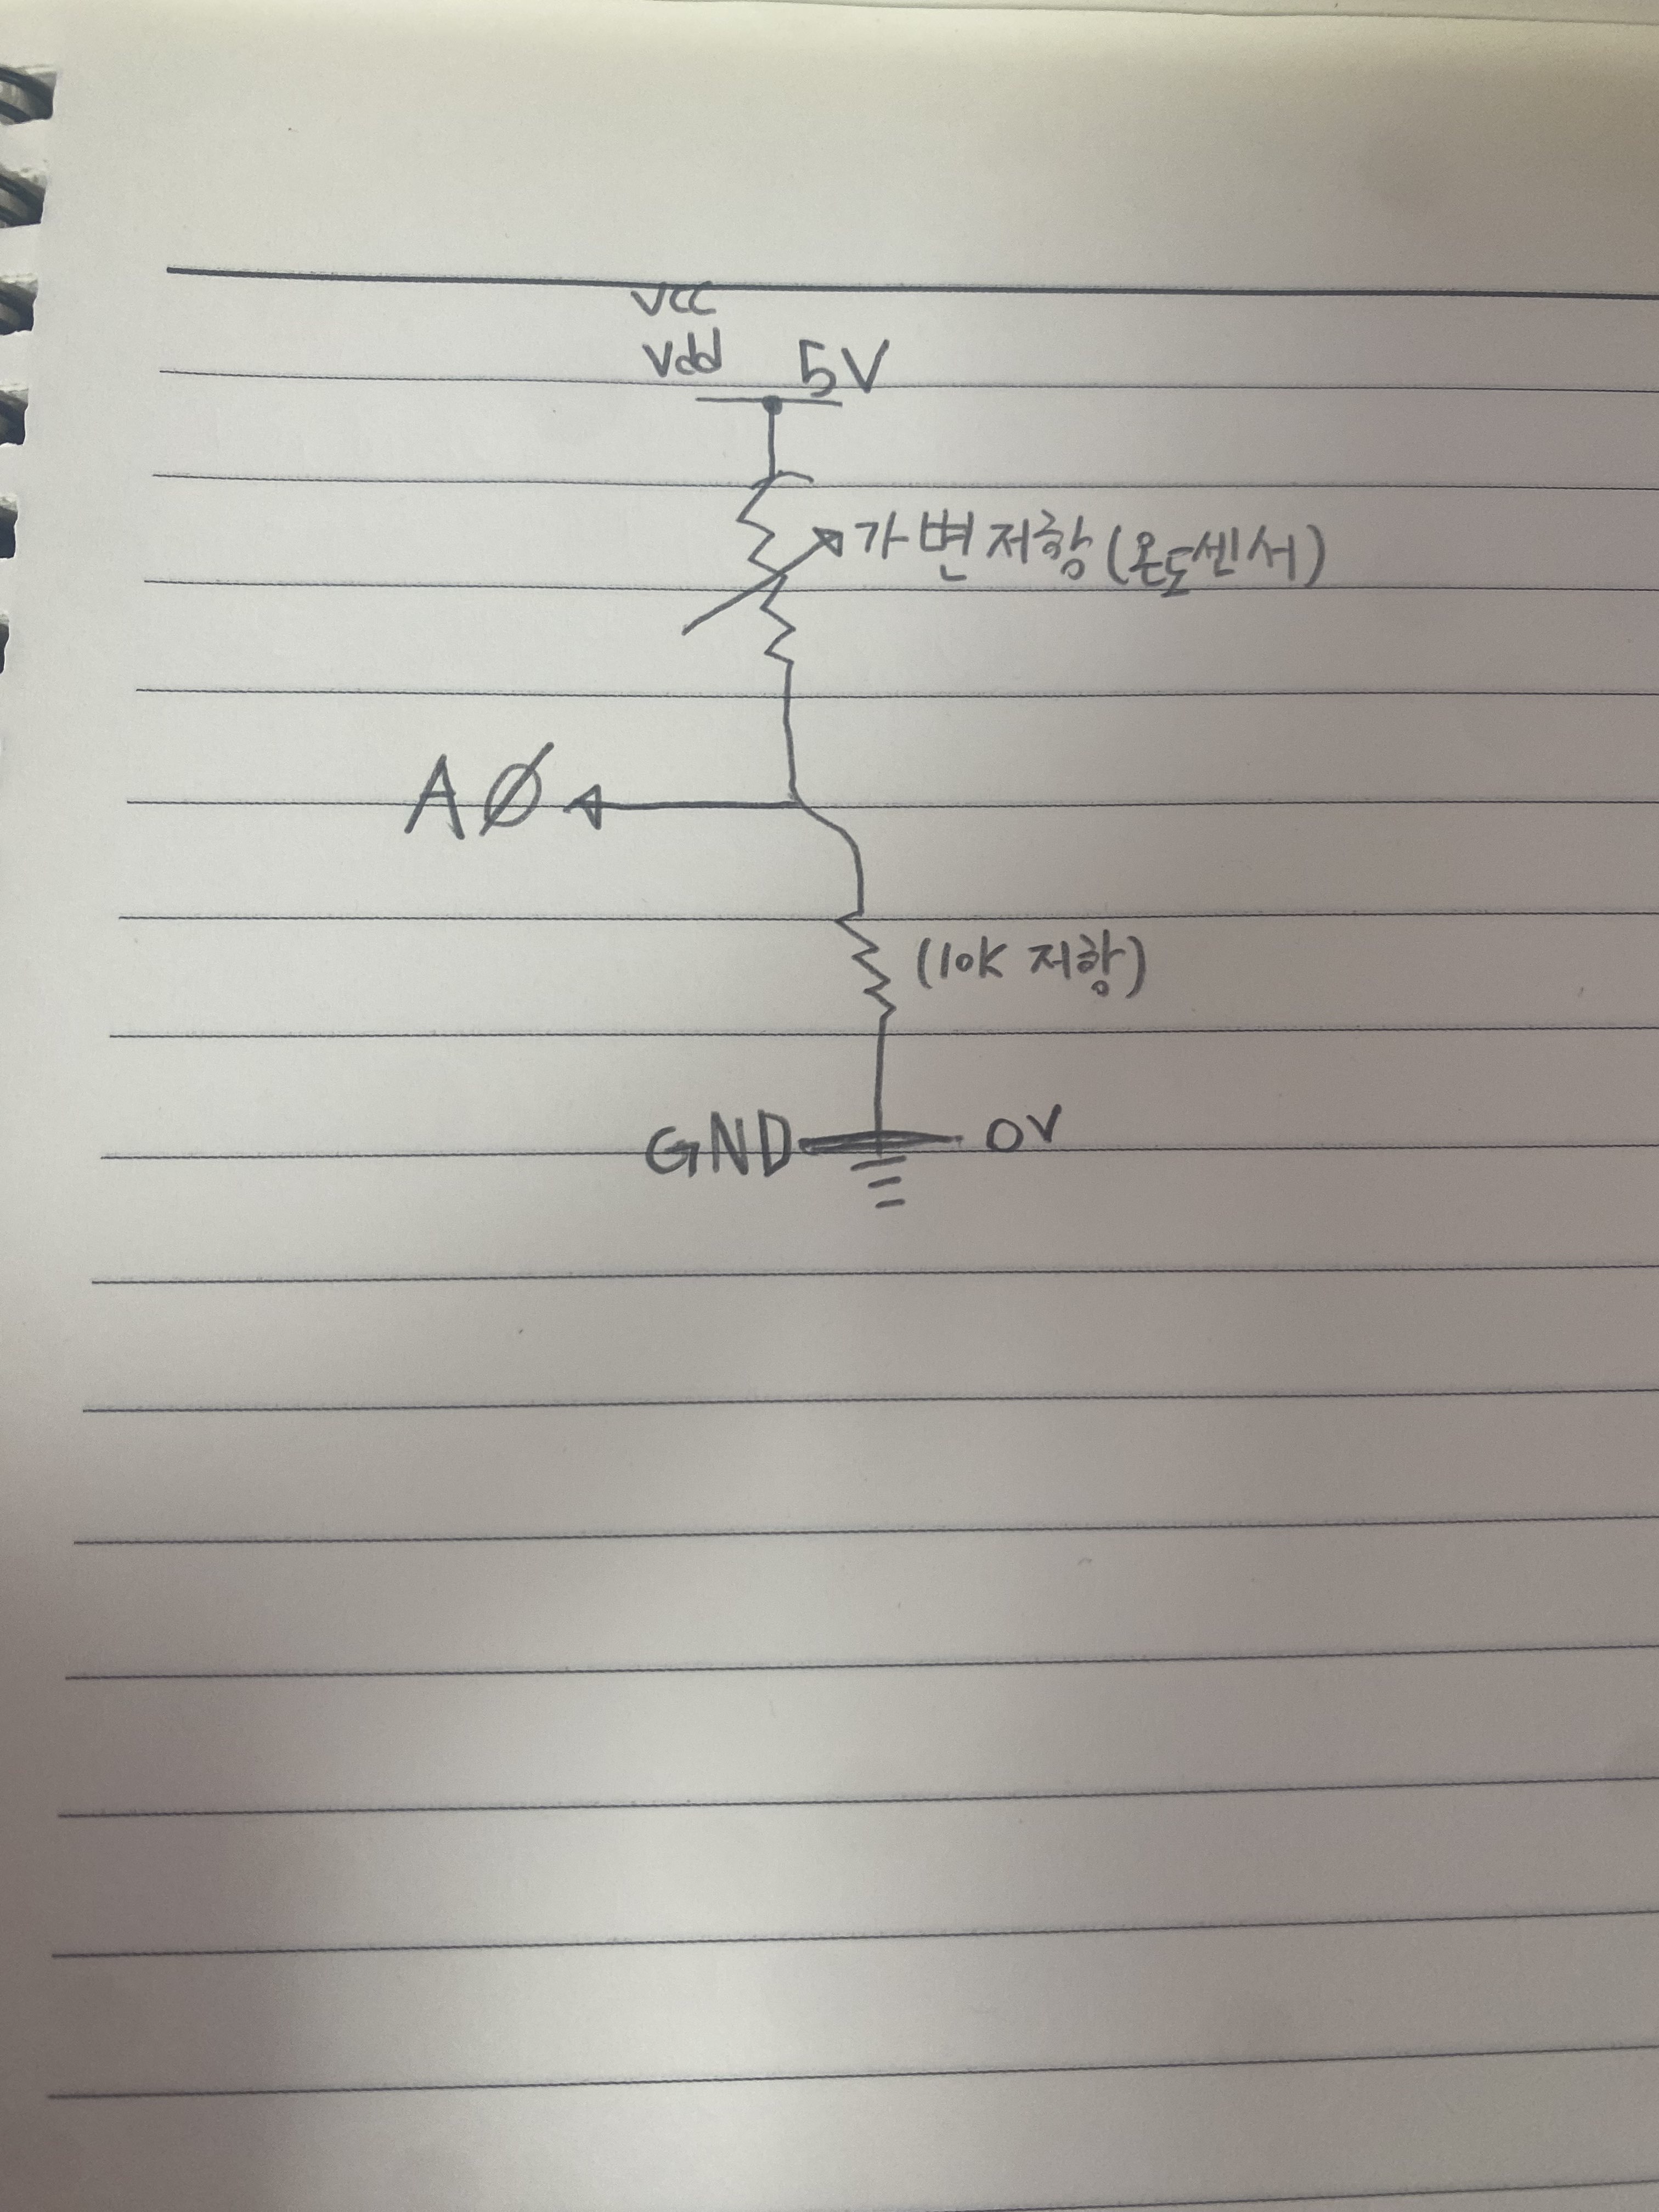 VCC
Vdd 5V
가변저항(온도센서)
AØ
(10K 저항)
GND 0V